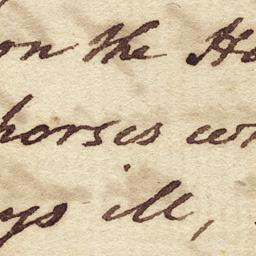 on the Ho
horses w
ys ill,